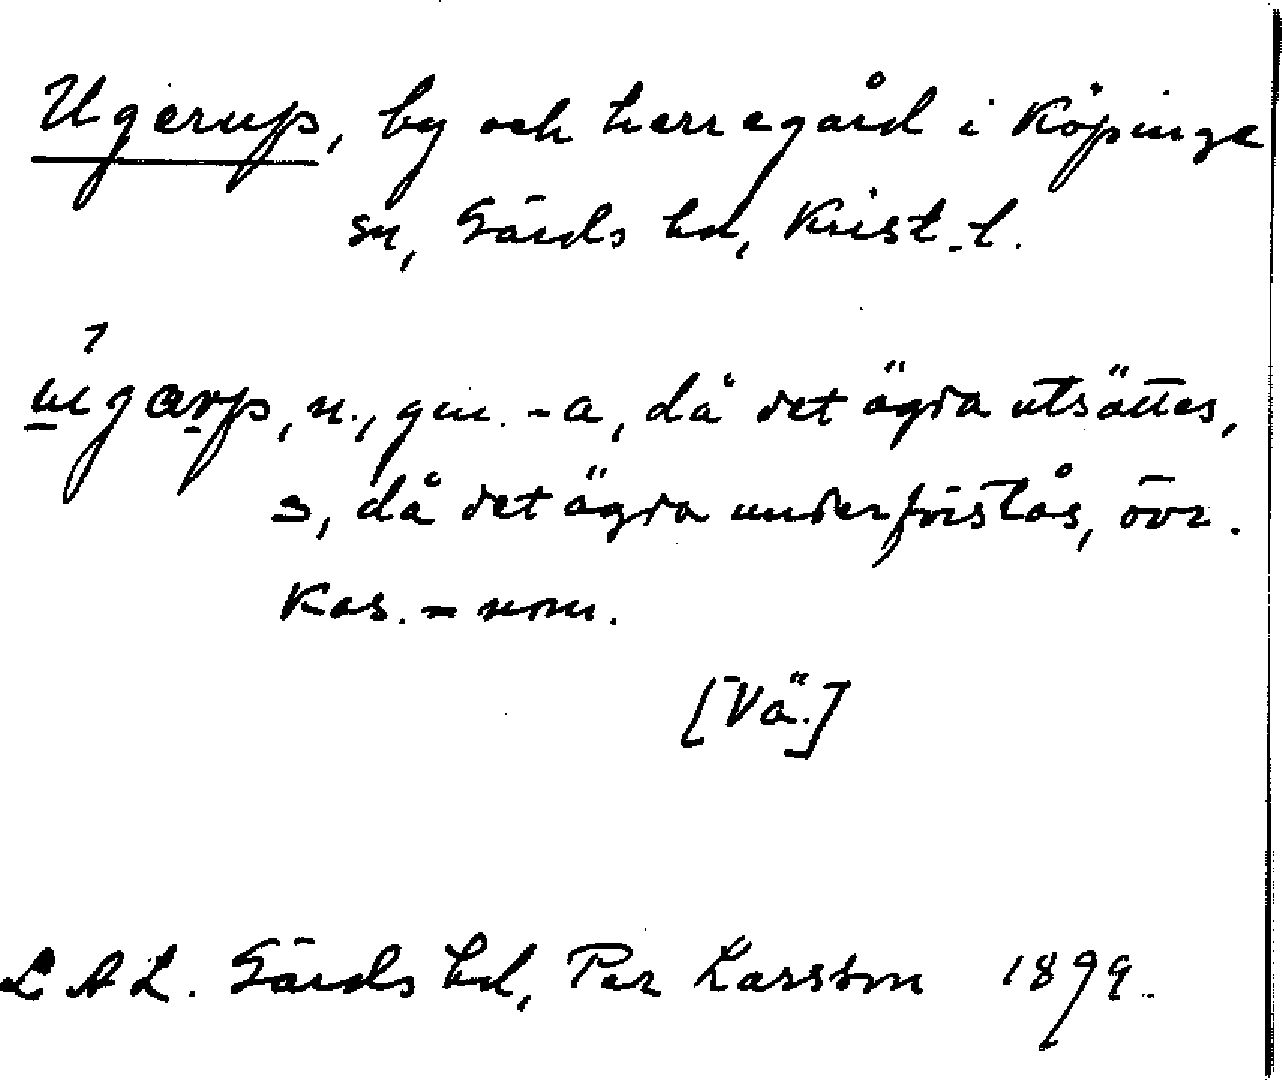 Ugerup, by och herregård i Köpinge
sn, Gärds hd, Krist. l.
ugarp, n., gen. -a, då det ägda utsättes,
s, då det ägda underförstås, övr.
kas. = nom.
[Vä.]
LAL. Gärds hd, Per Larsson 1899.